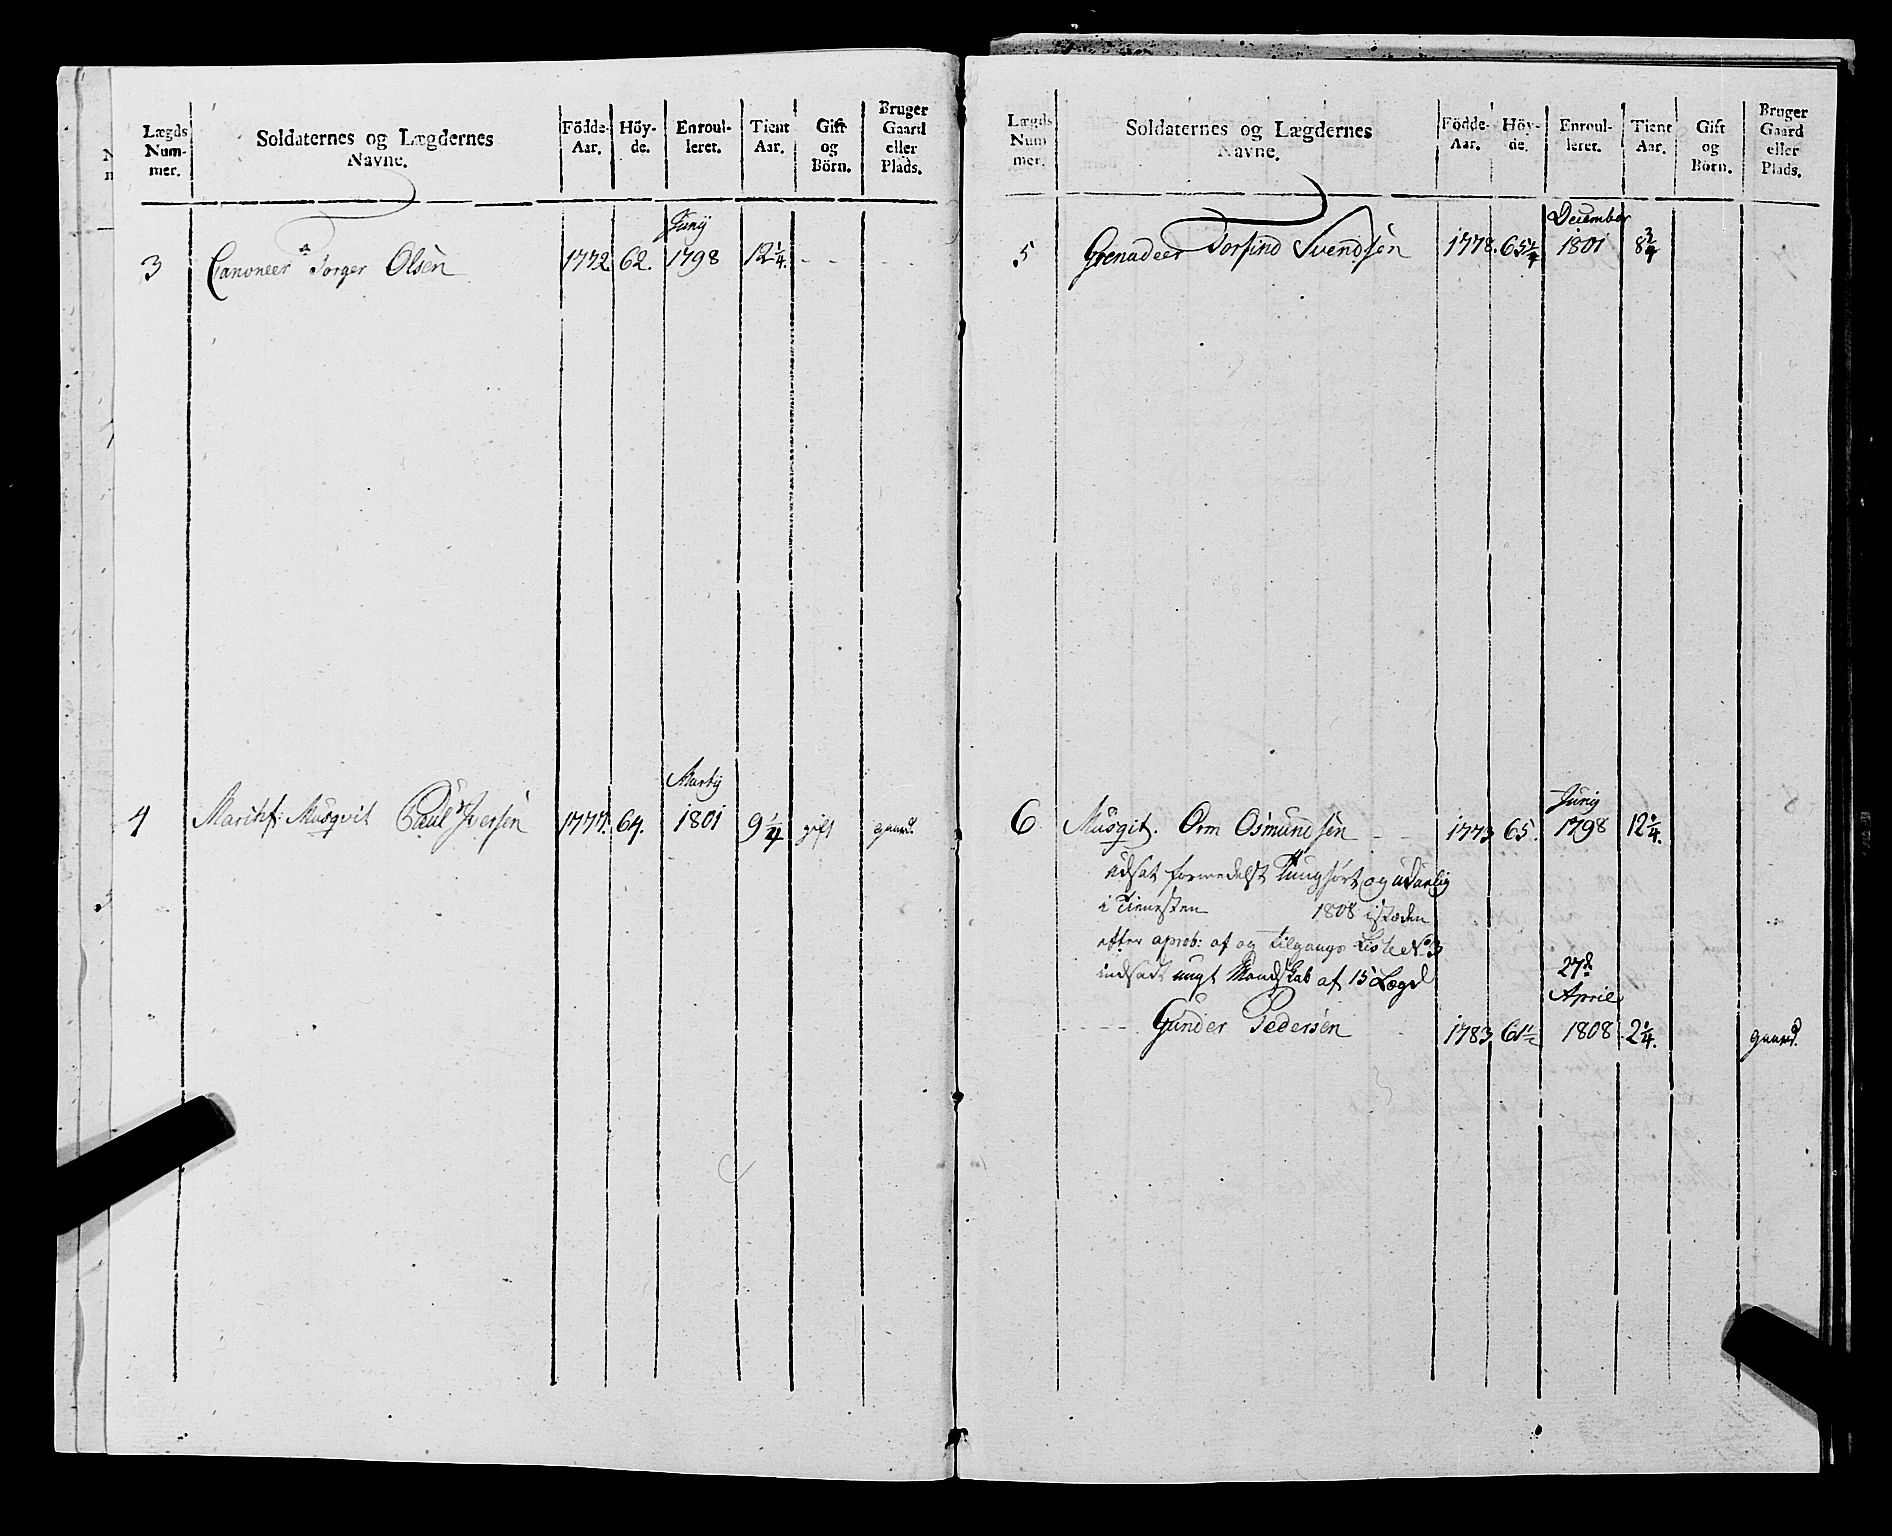 Lægds Num- mer.
Soldaternes og Lægdernes Navne.
Födde- Aar.
Höy- de.
Enroul- leret.
Tient Aar.
Gift og Börn.
Bruger Gaard eller Plads.
Junij
3 Canoneer Torger Olsen 1772 62. 1798 12 1/4. - - -
Martij
4 Musqvit Paul Iversen 1777. 64. 1801 9 1/4 gift gaard.
Lægds Num mer.
Soldaternes og Lægdernes Navne.
Födde- Aar.
Höy- de.
Enroul- leret.
Tient Aar.
Gift og Börn.
Bruger Gaard eller Plads.
December
5 Grenadeer Torfind Svendsen 1778. 65 1/4 1801 8 3/4
Junij
6 Musqit. Orm Osmundsen - - 1773 65. 1798 12 1/4.
udsat formedelst Tunghört og uduelig
i Tienesten 1808 istæden
efter aprob: af og tilgangs Liste No 3
indsadt ungt Mandskab af 15 Lægd
27de
April
- - - - Gunder Pedersen 1783 61 1/2 1808 2 1/4. gaard.